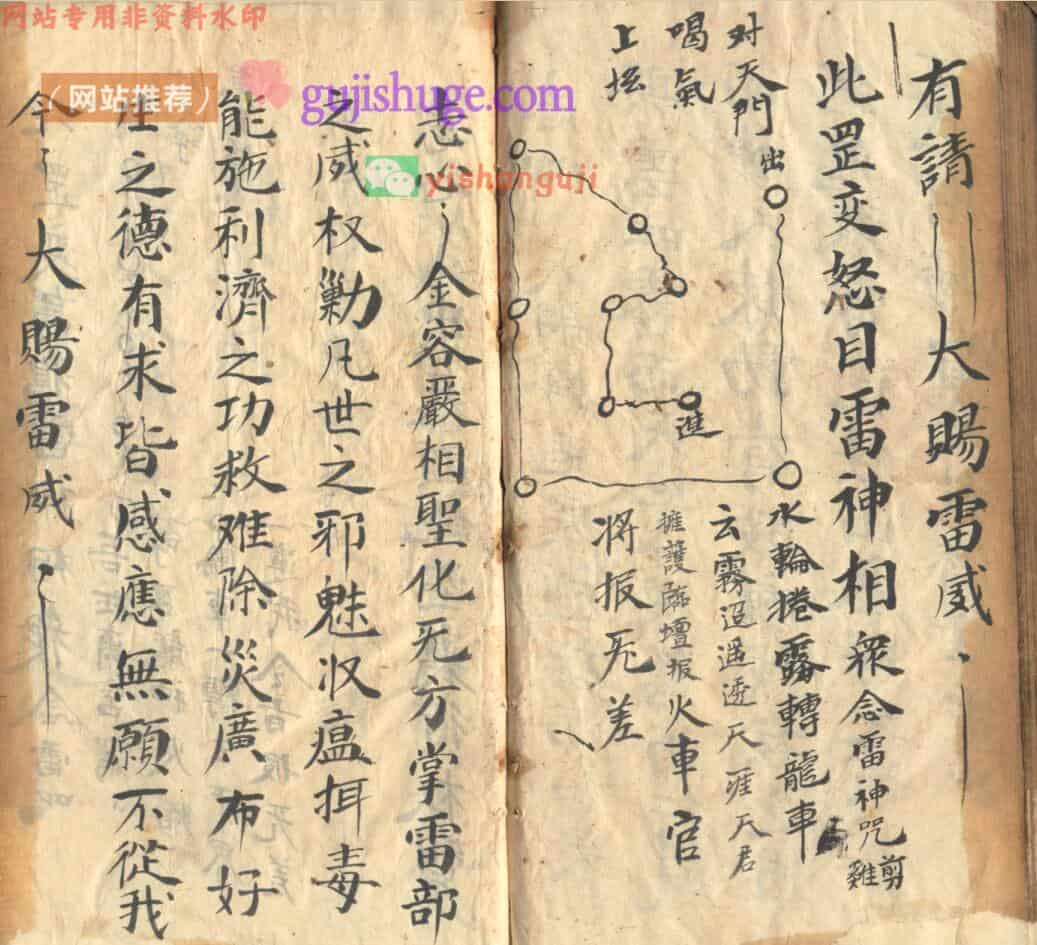 网站专用非资料水印
（网站推荐）
gujishuge.com
yishanguji
有請 大賜雷威
此罡变怒目雷神相 衆念雷神咒 剪雞
对天門
喝氣
上坛
出
進
水輪捲露轉龍車
云霧迢遥 天涯天君
擁護臨壇报火車官
将报无差
志心 金容嚴相聖化无方掌雷部
之威权勦凡世之邪魅收瘟摄毒
能施利濟之功救难除災廣布好
生之德有求皆感應無願不從我
今 大賜雷威